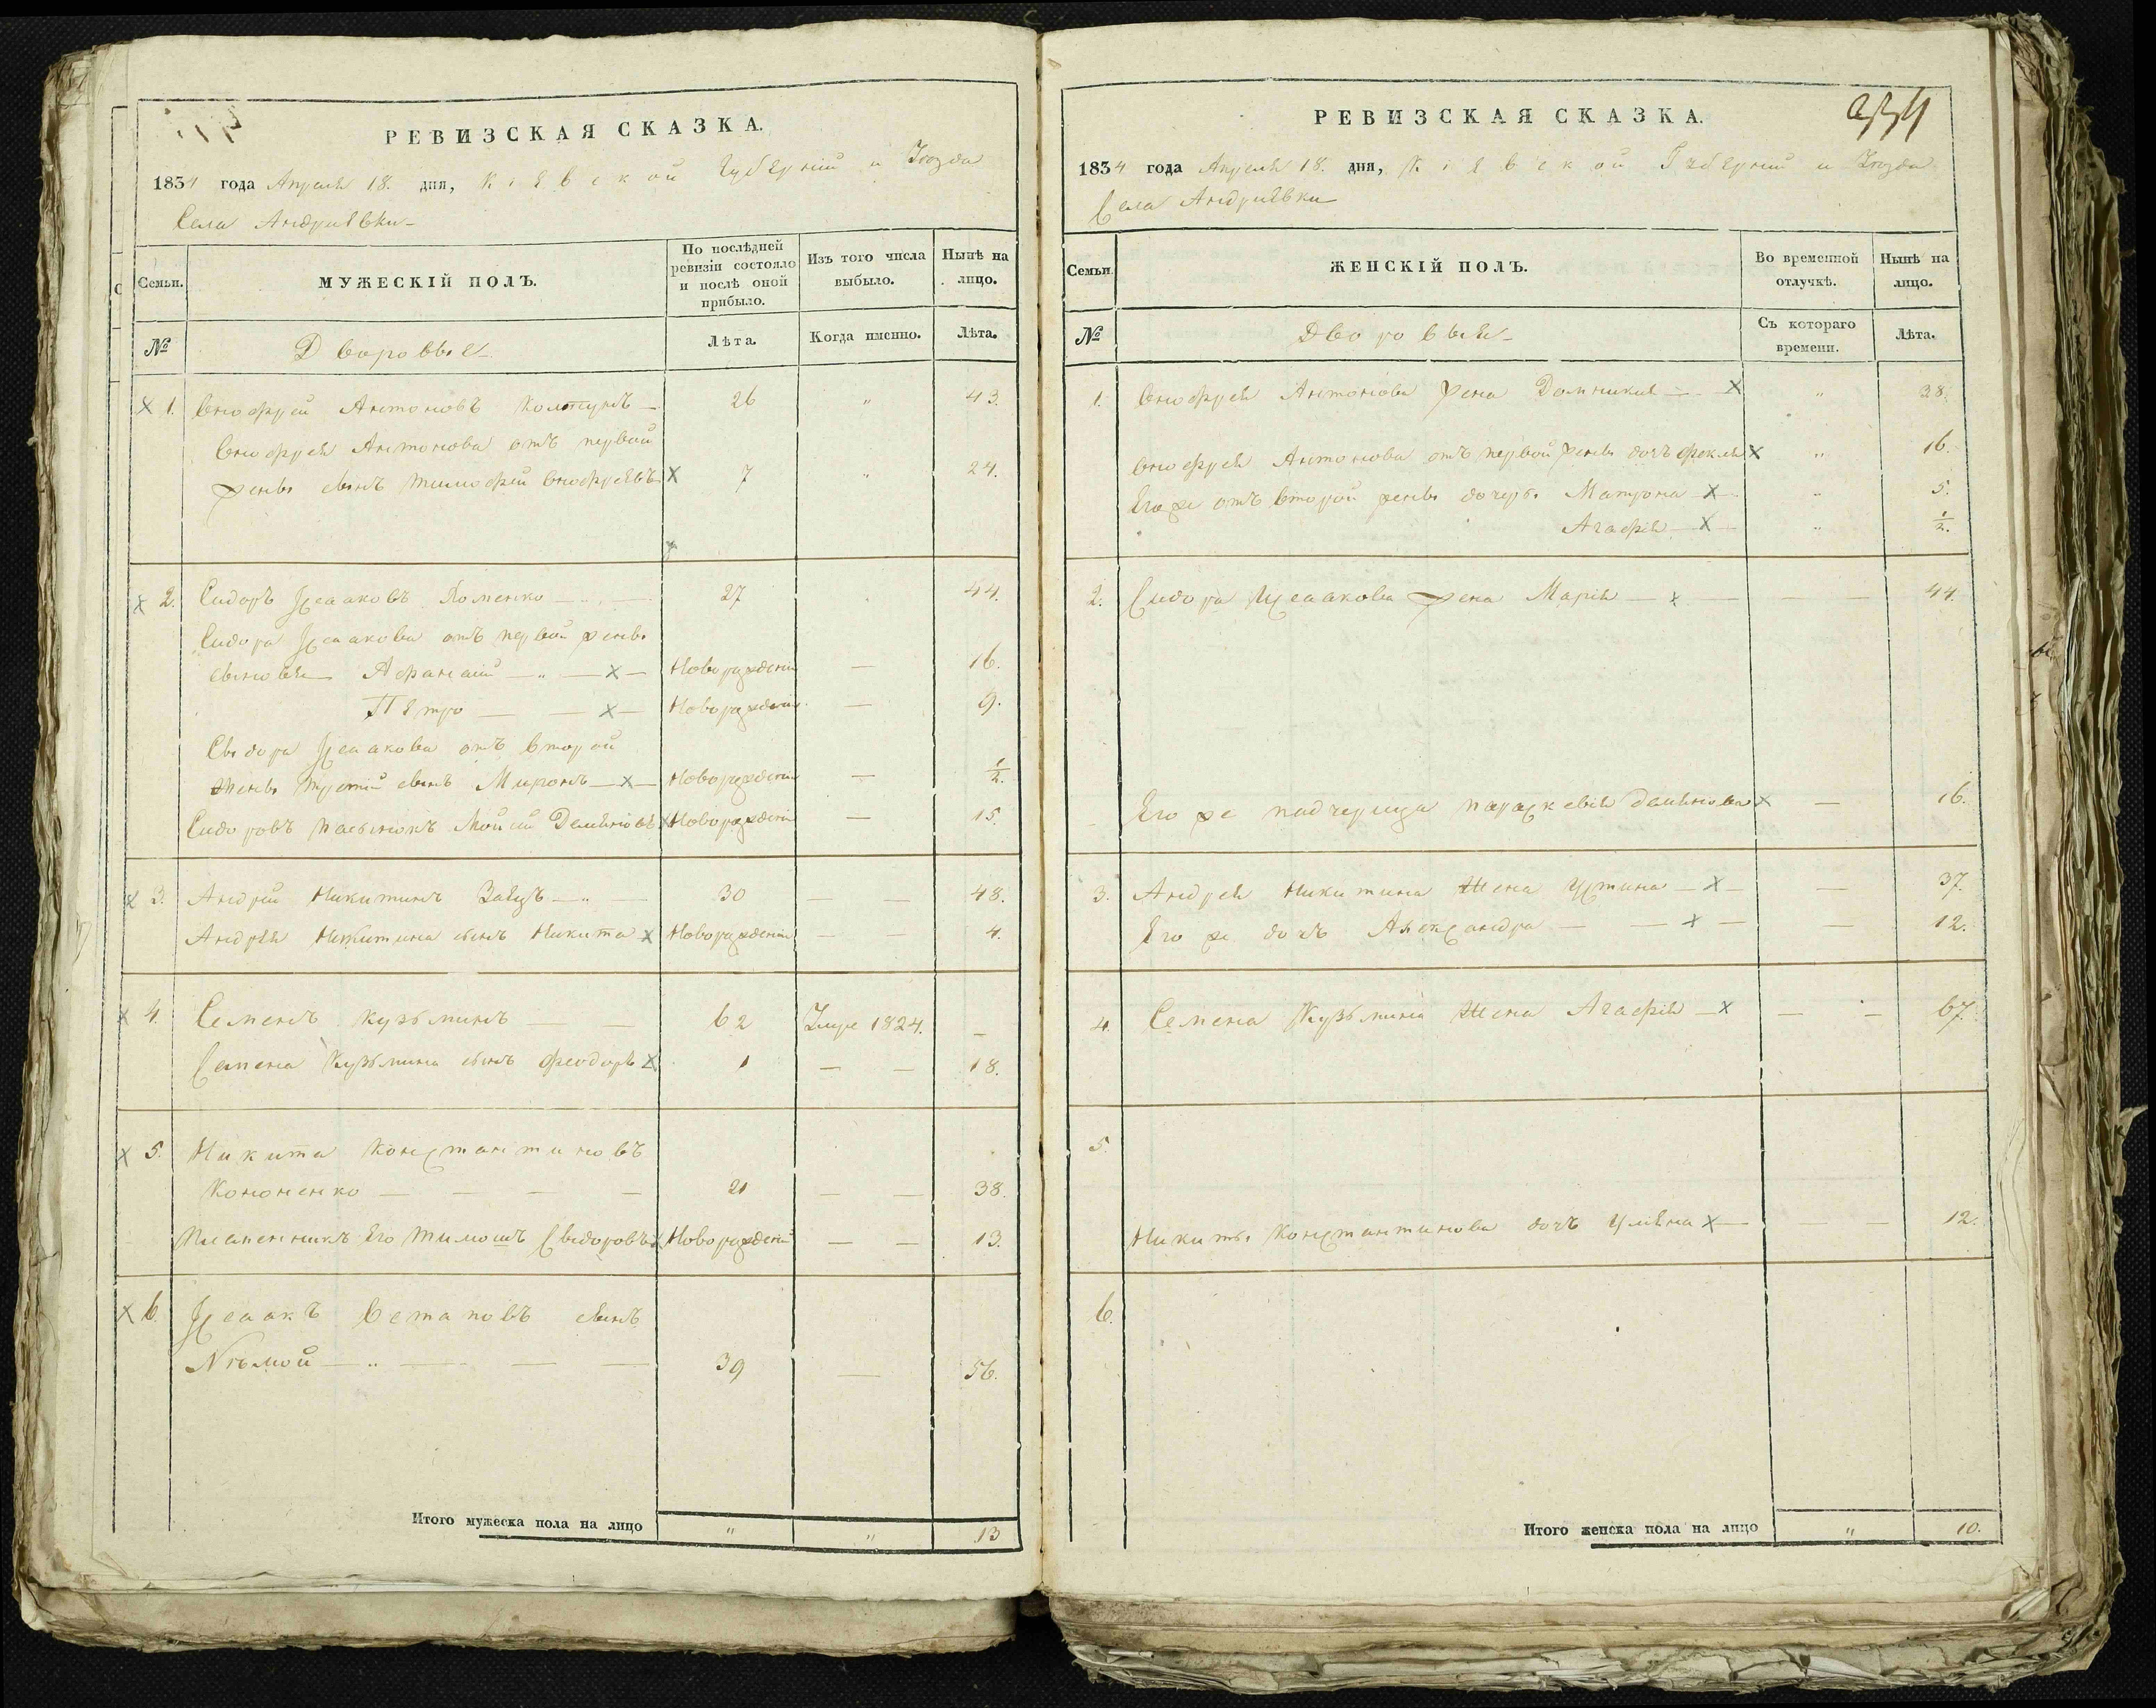 РЕВИЗСКАЯ СКАЗКА.
1834 года Апреля 18. дня, Кіевской Губерніи и Уезда
Села Андриевки
Семьи.
МУЖЕСКІЙ ПОЛЪ.
По послѣдней ревизіи состояло и послѣ оной прибыло.
Изъ того числа выбыло.
Нынѣ на лицо.
№
Дворовые
Лѣта.
Когда именно.
Лѣта.
1. Онофрей Антоновъ 26 " 43.
Онофрея Антонова отъ первой
жены сынъ Тимофей Онофреевъ 7 " 24.
2. Сидоръ Исааковъ Хоменко 27 44.
Сидора Исаакова отъ первой жены
сыновья Афанасій Новорожденъ — 16.
Петро Новорожденъ — 9.
Сыдора Исаакова отъ второй
жены третій сынъ Миронъ Новорожденъ — 1/2.
Сидоровъ пасынокъ Мойсей Демяновъ Новорожденъ — 15.
3. Андрей Никитинъ Заецъ 30 — — 48.
Андрея Никитина сынъ Никита Новорожденъ — — 4.
4. Семенъ Кузьминъ 62 Умре 1824. —
Семена Кузьмина сынъ Феодоръ 1 — — 18.
5. Никита Константиновъ
Кононенко 21 — — 38.
Племенникъ Его Тимошъ Сыдоровъ Новорожденъ — — 13.
6. Исаакъ Остаповъ сынъ
Нѣмой 39 — 56.
Итого мужеска пола на лицо " " 13
РЕВИЗСКАЯ СКАЗКА.
1834 года Апреля 18. дня, Кіевской Губерніи и Уезда
Села Андриевки
Семьи.
ЖЕНСКІЙ ПОЛЪ.
Во временной отлучкѣ.
Нынѣ на лицо.
№
Дворовыя
Съ котораго времени.
Лѣта.
1. Онофрея Антонова жена Домникия " 38.
Онофрея Антонова отъ первой жены дочь Фекля " 16.
Его же отъ второй жены дочери Матрона " 5.
Агафія " 1/2.
2. Сидора Исаакова жена Марія — — 44.
Его же падчерица Параскевія Демянова — 16.
3. Андрея Никитина жена Устина — 37.
Его же дочь Александра — 12.
4. Семена Кузьмина жена Агафія — — 67.
5.
Никиты Константинова дочь Уляна — — 12.
6.
Итого женска пола на лицо " 10.